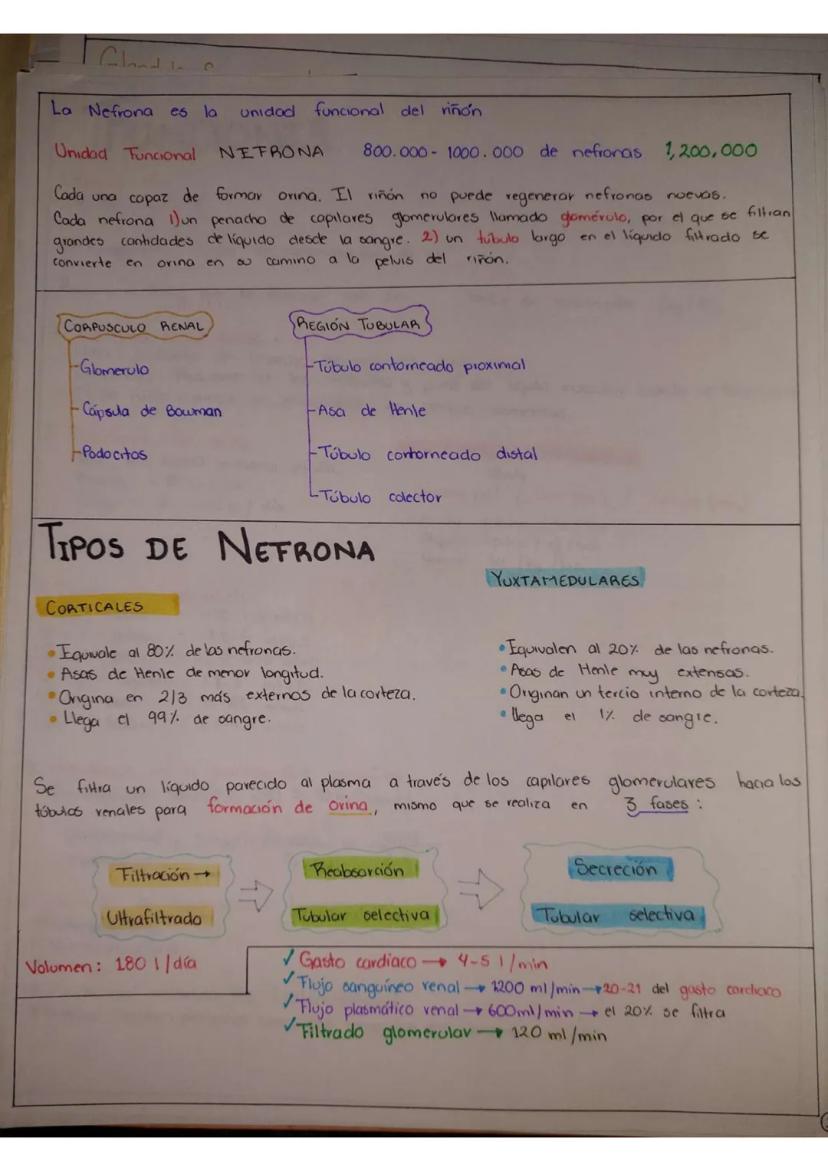 La Nefrona es la unidad funcional del riñón
Unidad Funcional NEFRONA 800.000 - 1000.000 de nefronas 1,200,000
Cada una capaz de formar orina. El riñón no puede regenerar nefronas nuevas.
Cada nefrona 1) un penacho de capilares glomerulares llamado glomérulo, por el que se filtran
grandes cantidades de líquido desde la sangre. 2) un túbulo largo en el líquido filtrado se
convierte en orina en su camino a la pelvis del riñón.
CORPUSCULO RENAL
Glomerulo
Cápsula de Bowman
Podocitos
REGIÓN TUBULAR
Túbulo contorneado proximal
Asa de Henle
Túbulo contorneado distal
Túbulo colector
TIPOS DE NEFRONA
CORTICALES
• Equivale al 80% de las nefronas.
• Asas de Henle de menor longitud.
• Origina en 2/3 más externos de la corteza.
• Llega el 99% de sangre.
YUXTAMEDULARES
• Equivalen al 20% de las nefronas.
• Asas de Henle muy extensas.
• Originan un tercio interno de la corteza.
• llega el 1% de sangre.
Se filtra un líquido parecido al plasma a través de los capilares glomerulares hacia los
túbulos renales para formación de orina, mismo que se realiza en 3 fases:
Filtración →
Ultrafiltrado
Reabsorción
Tubular selectiva
Secreción
Tubular selectiva
Volumen: 180 l/día
✓ Gasto cardiaco → 4-5 l/min
✓ Flujo sanguíneo renal → 1200 ml/min → 20-21 del gasto cardiaco
✓ Flujo plasmático renal → 600ml/min → el 20% se filtra
✓ Filtrado glomerular → 120 ml/min